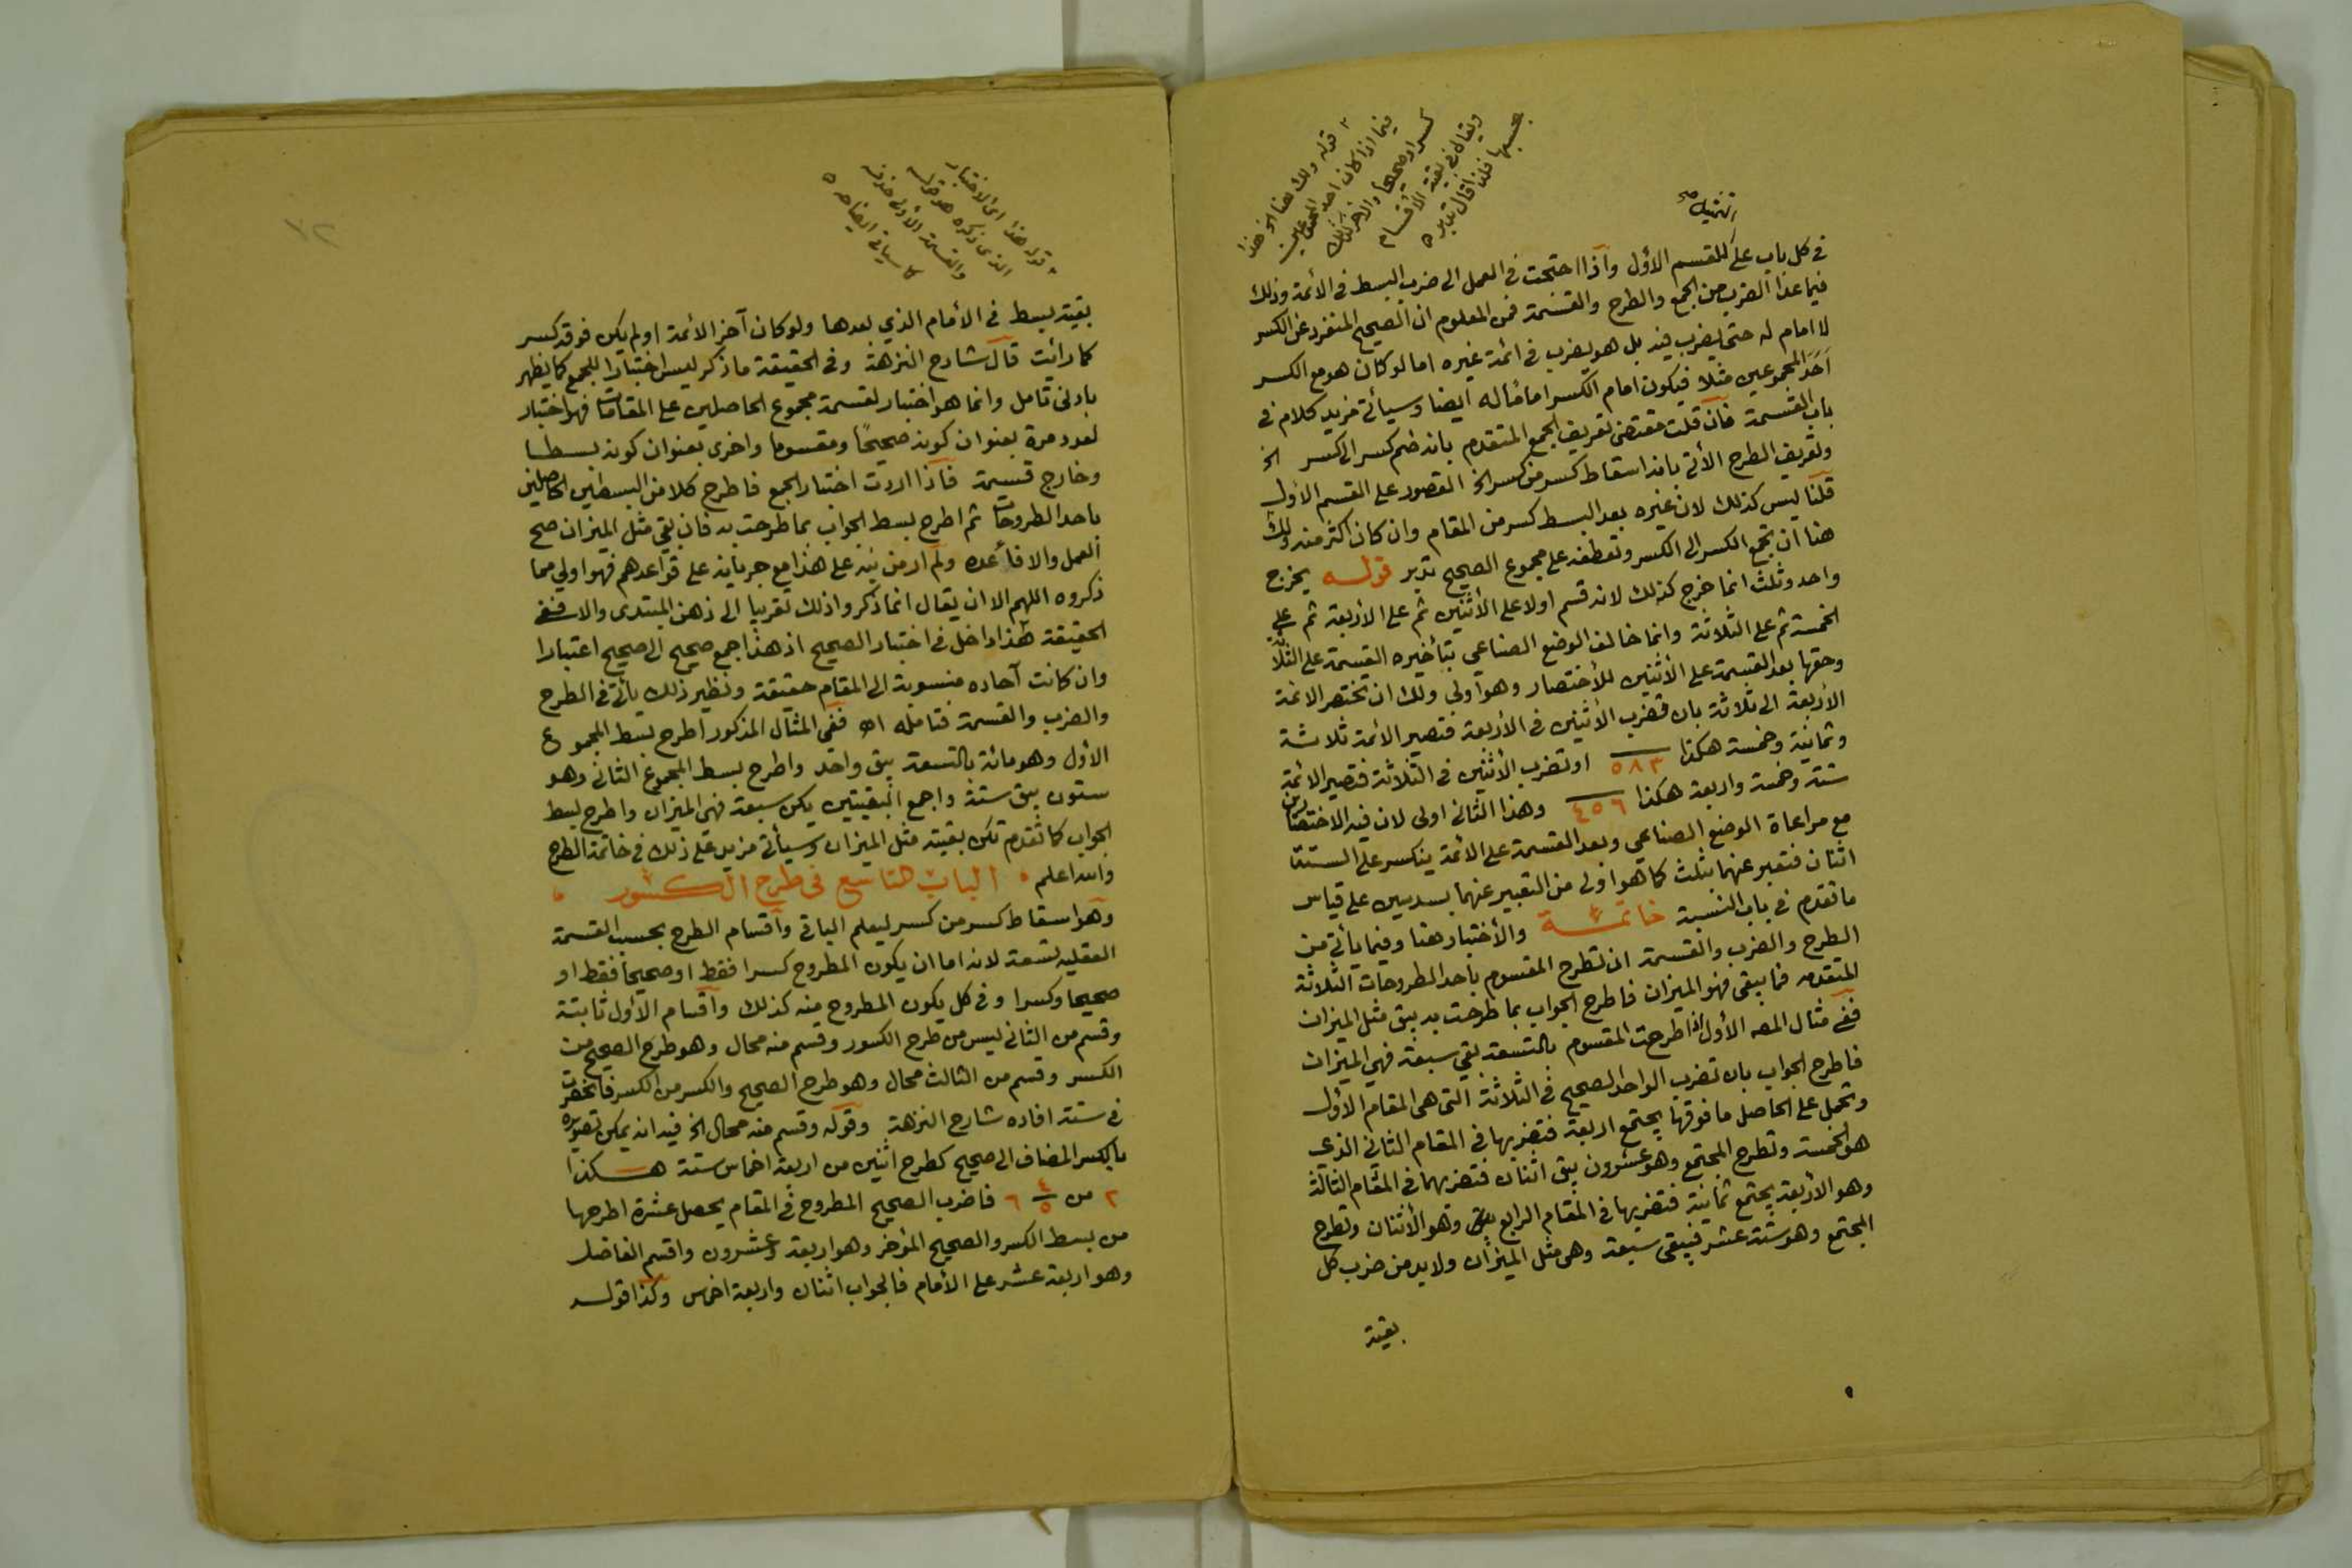 قوله ولك هنا الخ هذا
فيما اذا كان احد المجموعين
كسرا وصحيحا والاخر كذلك
ويقال في بقية الأقسام
بحسبها فلذا قال تدبر
في كل باب على القسم الأول وآذا احتجت في العمل الى ضرب البسط في الأئمة وذلك
فيما عدا الضرب من الجمع والطرح والقسمة فمن المعلوم ان الصحيح المنفرد عن الكسر
لا امام له حتى يضرب فيه بل هو يضرب في ائمة غيره اما لو كان هو مع الكسر
احد المجموعين مثلا فيكون امام الكسر اماما له ايضا وسيأتي مزيد كلام في
باب القسمة فان قلت مقتضى تعريف الجمع المتقدم بانه ضم كسر الى كسر الخ
وتعريف الطرح الآتي بانه اسقاط كسر من كسر الخ القصور على القسم الأول
قلنا ليس كذلك لان غيره بعد البسط كسر من المقام وان كان اكثر منه ولك
هنا ان تجمع الكسر الى الكسر وتعطفه على مجموع الصحيح تدبر قوله يخرج
واحد وثلث انما خرج كذلك لانه قسم اولا على الأثنين ثم على الاربعة ثم على
الخمسة ثم على الثلاثة وانما خالف الوضع الصناعي بتأخيره القسمة على الثلاثة
وحقها بعد القسمة على الأثنين للأختصار وهو أولى ولك ان تختصر الائمة
الأربعة الى ثلاثة بان تضرب الأثنين في الأربعة فتصير الأئمة ثلاثة
وثمانية وخمسة هكذا ٥٨٣ او تضرب الأثنين في الثلاثة فتصير الائمة
ستة وخمسة واربعة هكذا ٤٥٦ وهذا الثاني اولى لان فيه الاختصار
مع مراعاة الوضع الصناعي وبعد القسمة على الأئمة ينكسر على الستة
اثنان فتعبر عنهما بثلث كما هو اولى من التعبير عنهما بسدسين على قياس
ما تقدم في باب النسبة خاتمة والأختبار هنا وفيما يأتي من
الطرح والضرب والقسمة ان تطرح المقسوم بأحد الطروحات الثلاثة
المتقدمه فما يبقى فهو الميزان فاطرح الجواب بما طرحت به يبق مثل الميزان
ففي مثال المصه الأول اذا طرحت المقسوم بالتسعة بقي سبعة فهي الميزان
فاطرح الجواب بان تضرب الواحد الصحيح في الثلاثة التي هي المقام الأول
وتحمل على الحاصل ما فوقها يجتمع اربعة فتضربها في المقام الثاني الذي
هو الخمسة وتطرح المجتمع وهو عشرون يبق اثنان فتضربهما في المقام الثالث
وهو الأربعة يجتمع ثمانية فتضربها في المقام الرابع وهو الأثنان وتطرح
المجتمع وهو ستة عشر فيبقى سبعة وهي مثل الميزان ولا بد من ضرب كل
بقية
قوله هذا اي الاختبار
الذي ذكره هو قوله
والقسمة الأولى حذفه
كما سيأتي ايضاحه
بقية بسط في الأمام الذي بعدها ولو كان آخر الأئمة او لم يكن فوقه كسر
كما رائت قال شارح النزهة وفي الحقيقة ما ذكر ليس اختبارا للجمع كما يظهر
بادنى تامل وانما هو اختبار لقسمة مجموع الحاصلين على المقامات فهو اختبار
لعدد مرة بعنوان كونه صحيحًا ومقسوما واخرى بعنوان كونه بسطا
وخارج قسمة فاذا اردت اختبار الجمع فاطرح كلا من البسطين الحاصلين
باحد الطروحات ثم اطرح بسط الجواب بما طرحت به فان بقي مثل الميزان صح
العمل والا فأعده ولم ار من نبه على هذا مع جريانه على قواعدهم فهو اولي مما
ذكروه اللهم الا ان يقال انما ذكروا ذلك تقريبا الى ذهن المبتدى والا ففي
الحقيقة هذا داخل في اختبار الصحيح اذ هذا جمع صحيح الى صحيح اعتبارا
وان كانت آحاده منسوبة الى المقام حقيقة ونظير ذلك يأتي في الطرح
والضرب والقسمة فتامله اه ففي المثال المذكور اطرح بسط المجموع
الأول وهو مائة بالتسعة يبق واحد واطرح بسط المجموع الثاني وهو
ستون يبق ستة واجمع البقيتين يكن سبعة فهي الميزان واطرح بسط
الجواب كما تقدم تكن بقيته مثل الميزان وسيأتي مزيد على ذلك في خاتمة الطرح
والله اعلم الباب التاسع في طرح الكسور
وهو اسقاط كسر من كسر ليعلم الباقي وأقسام الطرح بحسب القسمة
العقلية تسعة لانه اما ان يكون المطروح كسرا فقط او صحيحا فقط او
صحيحا وكسرا وفي كل يكون المطروح منه كذلك واقسام الأول ثابتة
وقسم من الثاني ليس من طرح الكسور وقسم منه محال وهو طرح الصحيح من
الكسر وقسم من الثالث محال وهو طرح الصحيح والكسر من الكسر فانحصرت
في ستة افاده شارح النزهة وقوله وقسم منه محال الخ فيه انه يمكن تصويره
بالكسر المضاف الى صحيح كطرح اثنين من اربعة اخماس ستة هكذا
٢ من ٤/٥ ٦ فاضرب الصحيح المطروح في المقام يحصل عشرة اطرحها
من بسط الكسر والصحيح المؤخر وهو اربعة وعشرون واقسم الفاضل
وهو اربعة عشر على الأمام فالجواب اثنان واربعة اخماس وكذا قوله